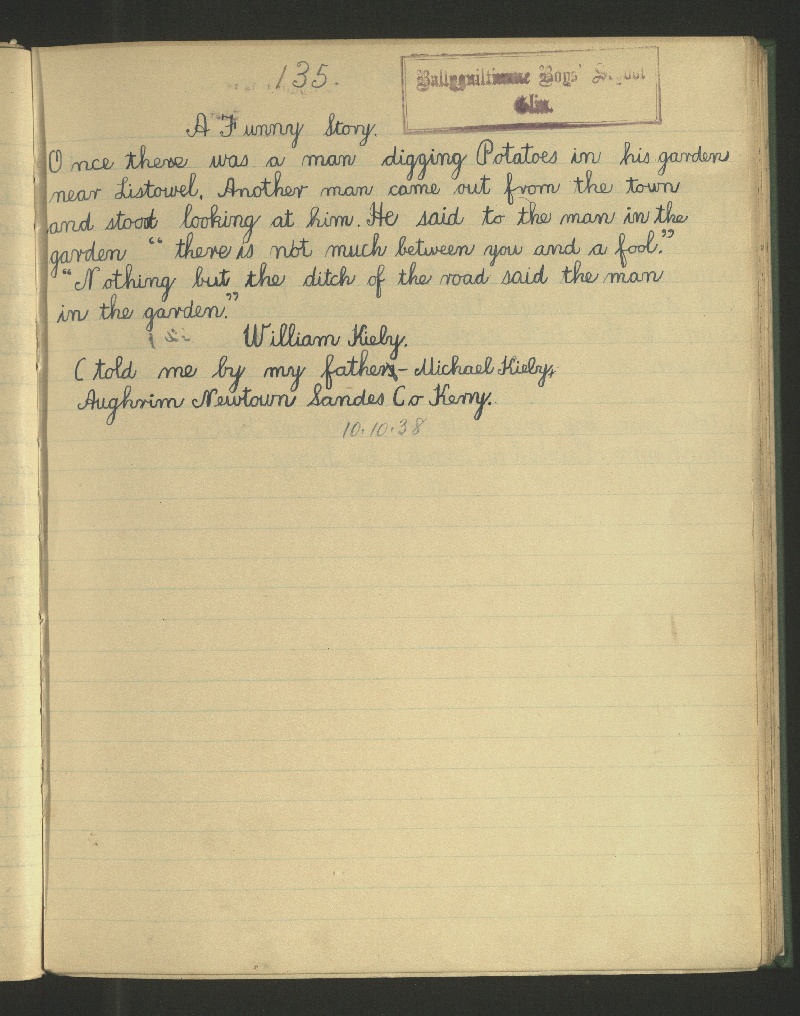 135.
Ballyguiltinane Boys' School
Glin.
A Funny Story.
Once there was a man digging Potatoes in his garden
near Listowel. Another man came out from the town
and stood looking at him. He said to the man in the
garden "there is not much between you and a fool."
"Nothing but the ditch of the road said the man
in the garden."
William Kieby.
(told me by my father - Michael Kieby,
Aughrim Newtown Sandes Co Kerry.
10.10.38